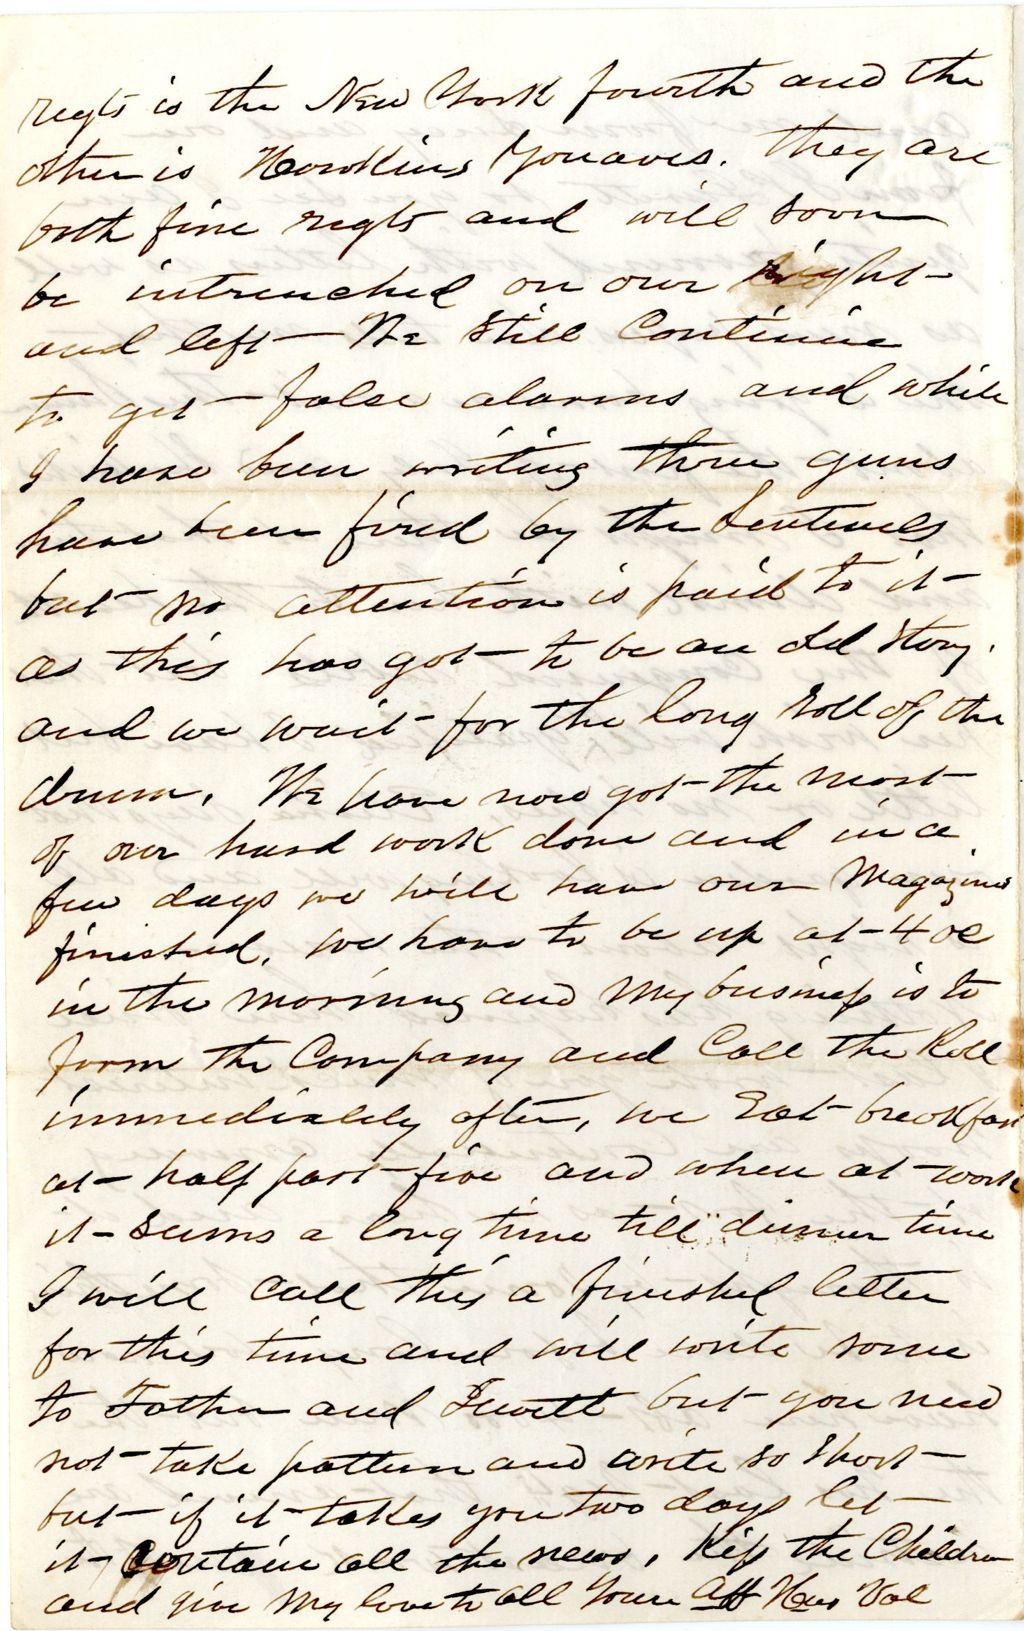 regts is the New York fourth and the
other is Hawkins Zouaves. they are
both fine regts and will soon
be intrenched on our right
and left We still Continue
to get false alarms and while
I have been writing three guns
have been fired by the Sentinels
but no attention is paid to it
as this has got to be an old story.
and we wait for the long roll of the
drum. We have now got the most
of our hard work done and in a
few days we will have our Magazines
finished. we have to be up at 4 oc
in the morning and My business is to
form the Company and Call the Roll
immediately after, we Eat breakfast
at half past five and when at work
it seems a long time till dinner time
I will Call this a finished letter
for this time and will write some
to Father and Jewett but you need
not take pattern and write so short
but if it takes you two days let
it contain all the news. Kiss the Children
and give My love to all Your Aff Hus Val